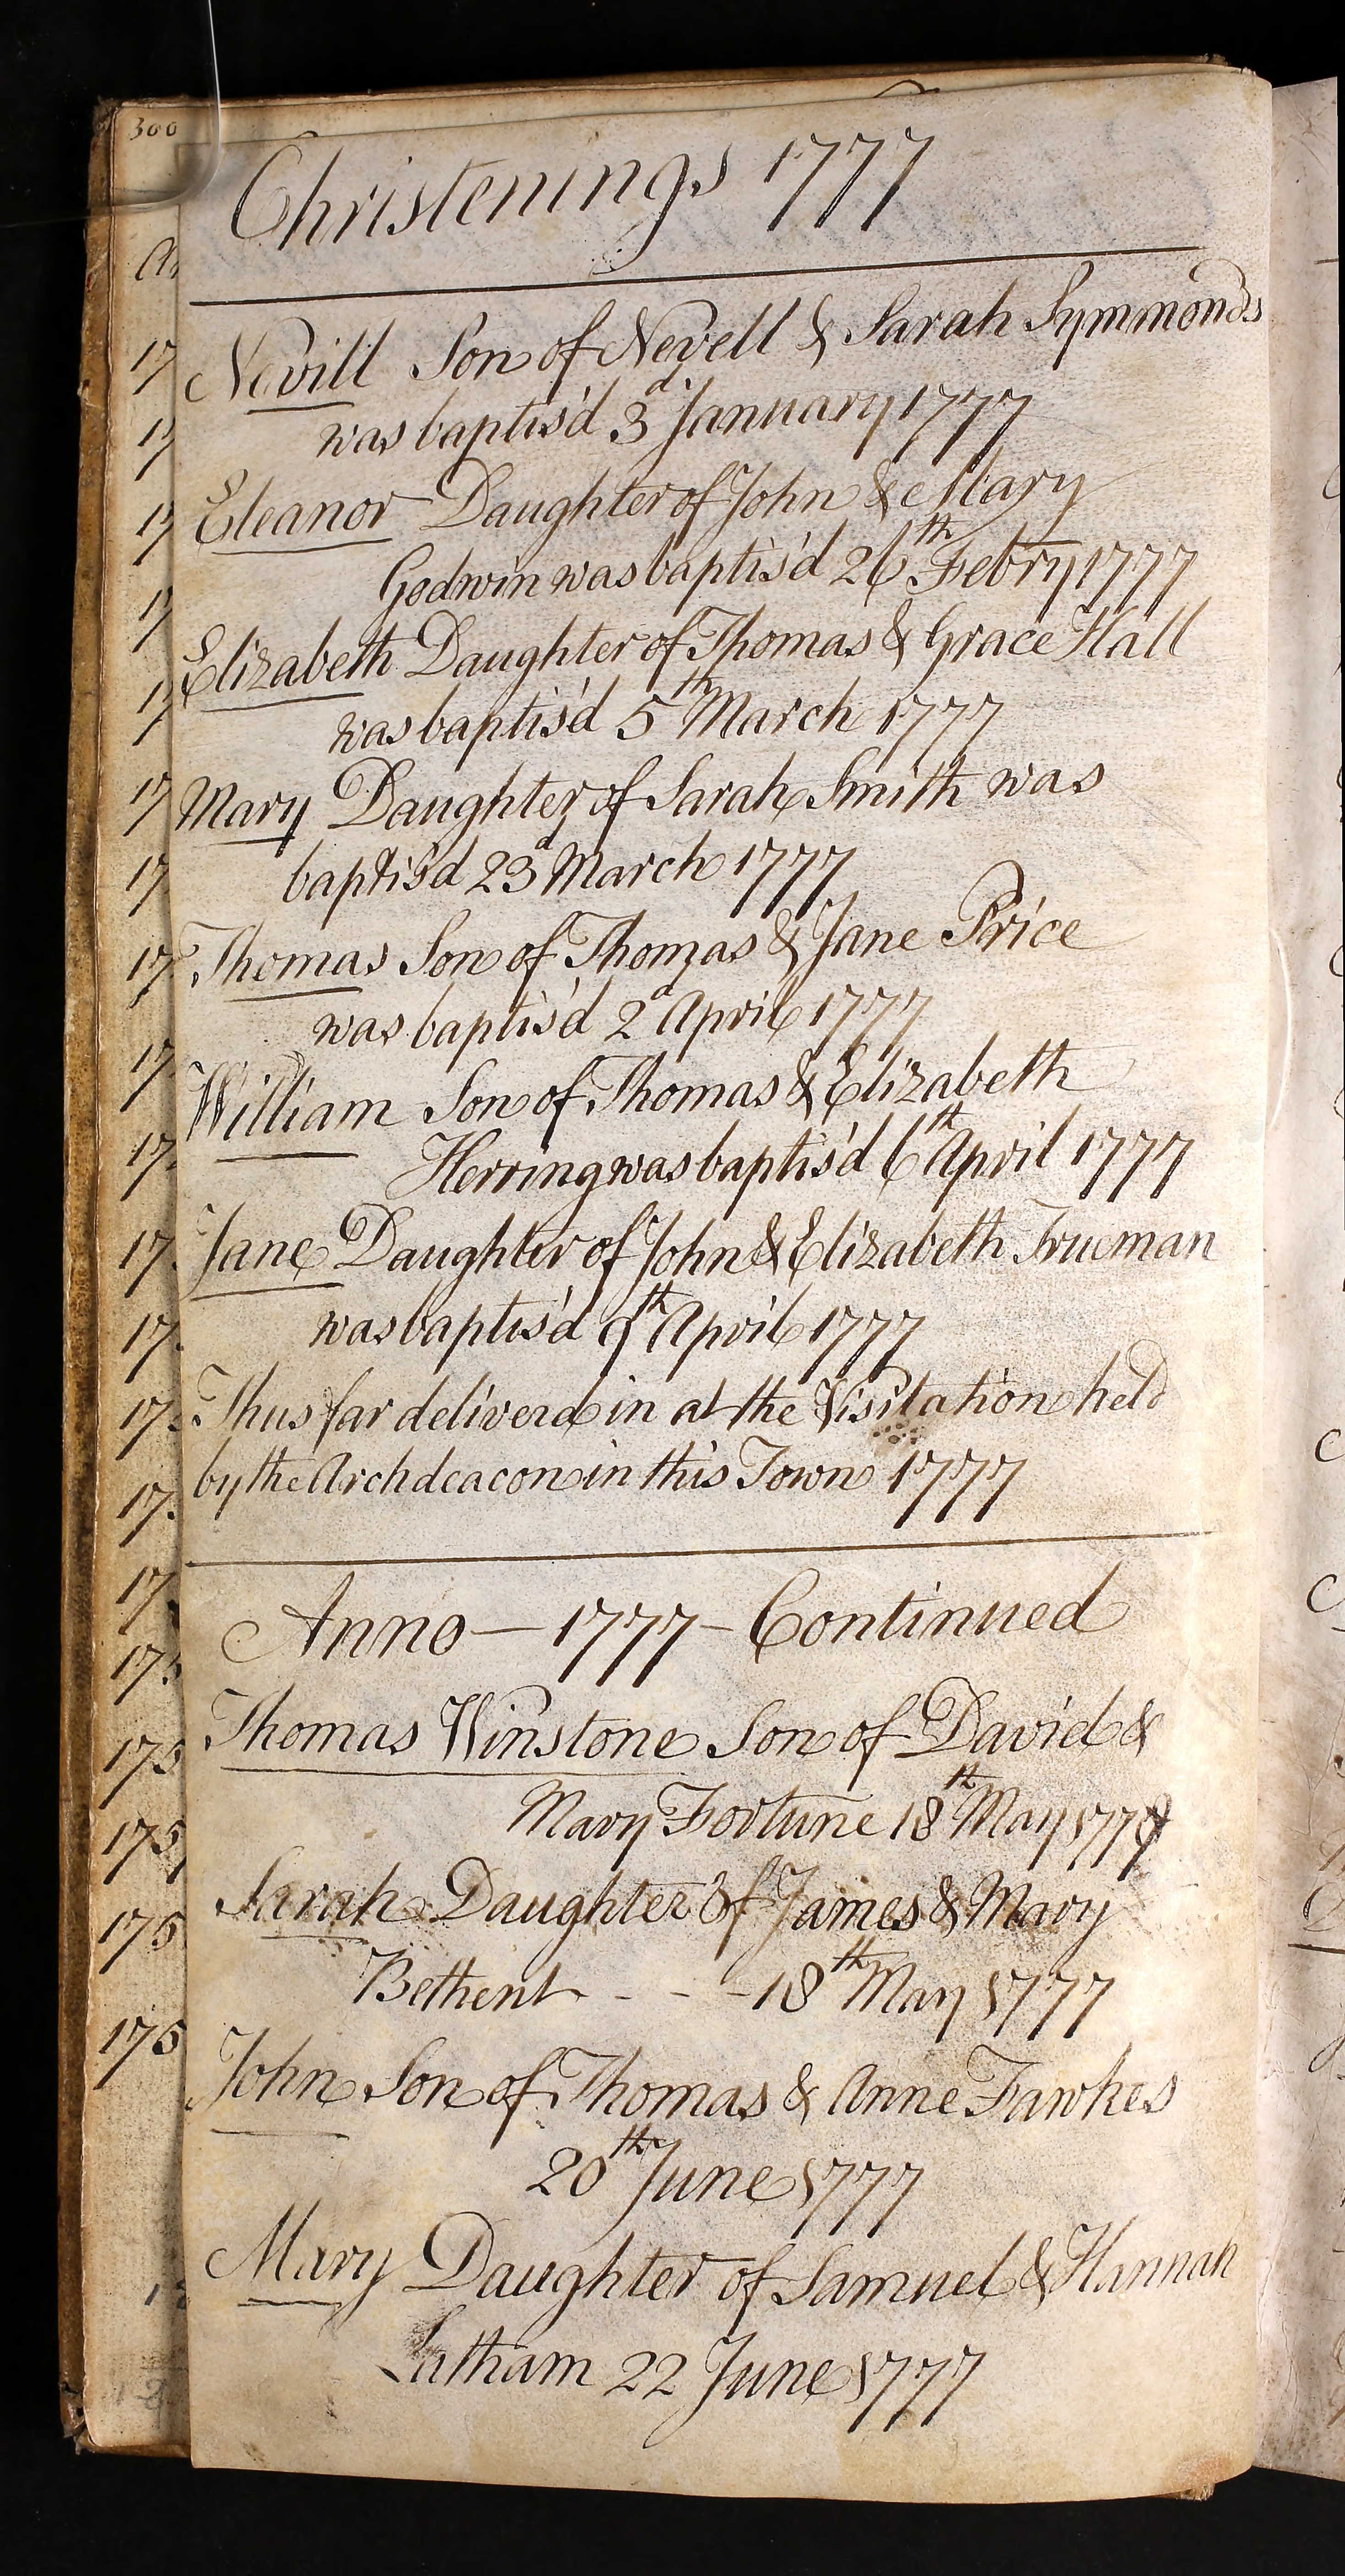 300
Christenings 1777
Nevill Son of Nevell & Sarah Symmonds
was baptis'd 3d January 1777
Eleanor Daughter of John & Mary
Godwin was baptis'd 26th Febry 1777
Elizabeth Daughter of Thomas & Grace Hall
was baptis'd 5th March 1777
Mary Daughter of Sarah Smith was
baptis'd 23d March 1777
Thomas Son of Thomas & Jane Price
was baptis'd 2d April 1777
William Son of Thomas & Elizabeth
Herring was baptis'd 6th April 1777
Jane Daughter of John & Elizabeth Trueman
was baptis'd 9th April 1777
Thus far deliverd in at the Visitation held
by the Archdeacon in this Town 1777
Anno — 1777 — Continued
Thomas Winstone Son of David &
Mary Fortune 18th May 1777
Sarah Daughter of James & Mary
Bethent - - - 18th May 1777
John Son of Thomas & Anne Fawkes
20th June 1777
Mary Daughter of Samuel & Hannah
Latham 22 June 1777